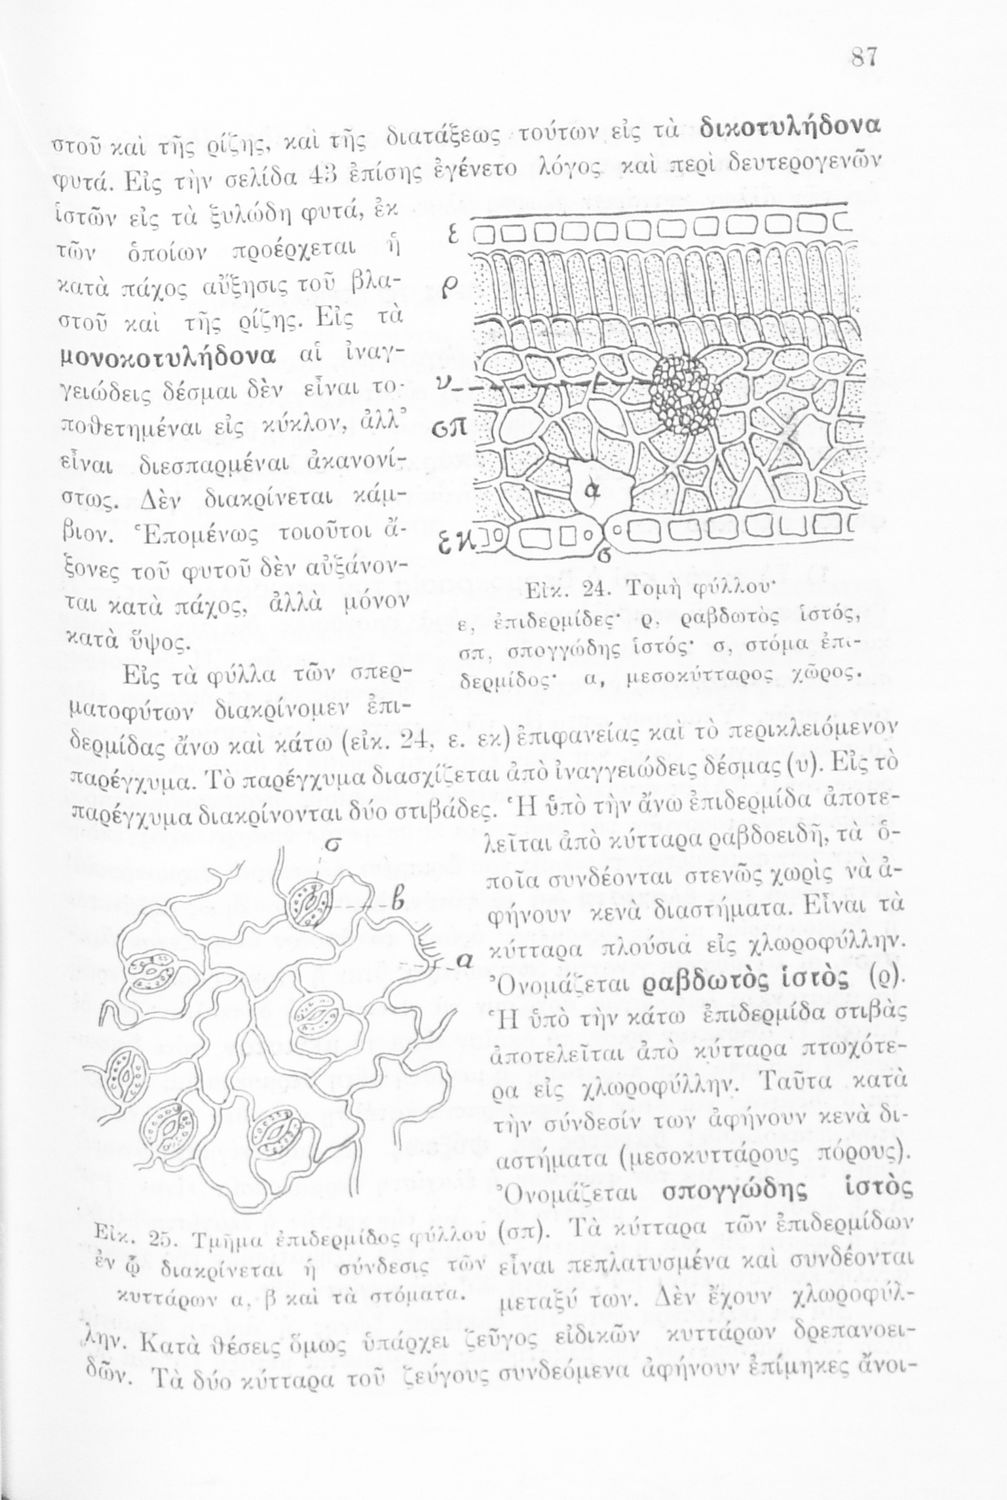 87
στοῦ καὶ τῆς ρίζης, καὶ τῆς διατάξεως τούτων εἰς τὰ δικοτυλήδονα
φυτά. Εἰς τὴν σελίδα 43 ἐπίσης ἐγένετο λόγος καὶ περὶ δευτερογενῶν
ἱστῶν εἰς τὰ ξυλώδη φυτά, ἐκ
τῶν ὁποίων προέρχεται ἡ
κατὰ πάχος αὔξησις τοῦ βλα-
στοῦ καὶ τῆς ρίζης. Εἰς τὰ
μονοκοτυλήδονα αἱ ἰναγ-
γειώδεις δέσμαι δὲν εἶναι το-
ποθετημέναι εἰς κύκλον, ἀλλ’
εἶναι διεσπαρμέναι ἀκανονί-
στως. Δὲν διακρίνεται κάμ-
βιον. Ἑπομένως τοιοῦτοι ἄ-
ξονες τοῦ φυτοῦ δὲν αὐξάνον-
ται κατὰ πάχος, ἀλλὰ μόνον
κατὰ ὕψος.
Εἰς τὰ φύλλα τῶν σπερ-
ματοφύτων διακρίνομεν ἐπι-
ε
ρ
υ
σπ
α
εκ
σ
Εἰκ. 24. Τομὴ φύλλου·
ε, ἐπιδερμίδες· ρ, ραβδωτὸς ἱστός,
σπ, σπογγώδης ἱστός· σ, στόμα ἐπι-
δερμίδος· α, μεσοκύτταρος χῶρος.
δερμίδας ἄνω καὶ κάτω (εἰκ. 24, ε. εκ) ἐπιφανείας καὶ τὸ περικλειόμενον
παρέγχυμα. Τὸ παρέγχυμα διασχίζεται ἀπὸ ἰναγγειώδεις δέσμας (υ). Εἰς τὸ
παρέγχυμα διακρίνονται δύο στιβάδες. Ἡ ὑπὸ τὴν ἄνω ἐπιδερμίδα ἀποτε-
λεῖται ἀπὸ κύτταρα ραβδοειδῆ, τὰ ὁ-
ποῖα συνδέονται στενῶς χωρὶς νὰ ἀ-
φήνουν κενὰ διαστήματα. Εἶναι τὰ
κύτταρα πλούσια εἰς χλωροφύλλην.
Ὀνομάζεται ραβδωτὸς ἱστὸς (ρ).
Ἡ ὑπὸ τὴν κάτω ἐπιδερμίδα στιβὰς
ἀποτελεῖται ἀπὸ κύτταρα πτωχότε-
ρα εἰς χλωροφύλλην. Ταῦτα κατὰ
τὴν σύνδεσίν των ἀφήνουν κενὰ δι-
αστήματα (μεσοκυττάρους πόρους).
Ὀνομάζεται σπογγώδης ἱστὸς
(σπ). Τὰ κύτταρα τῶν ἐπιδερμίδων
εἶναι πεπλατυσμένα καὶ συνδέονται
μεταξύ των. Δὲν ἔχουν χλωροφύλ-
σ
β
α
Εἰκ. 25. Τμῆμα ἐπιδερμίδος φύλλου
ἐν ᾧ διακρίνεται ἡ σύνδεσις τῶν
κυττάρων α, β καὶ τὰ στόματα.
λην. Κατὰ θέσεις ὅμως ὑπάρχει ζεῦγος εἰδικῶν κυττάρων δρεπανοει-
δῶν. Τὰ δύο κύτταρα τοῦ ζεύγους συνδεόμενα ἀφήνουν ἐπίμηκες ἄνοι-